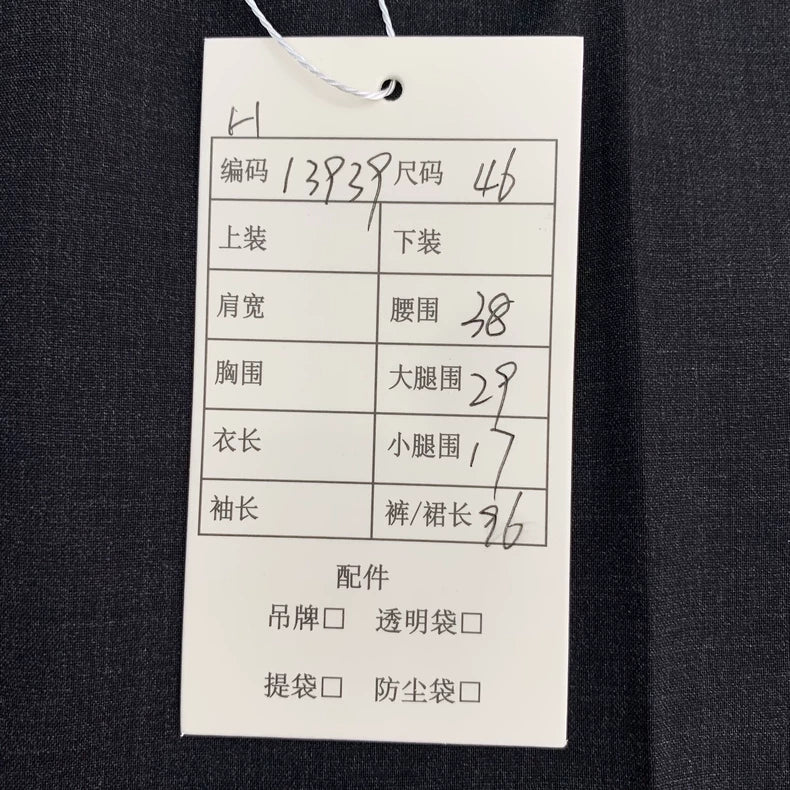 H
编码 13939 尺码 46
上装 下装
肩宽 腰围 38
胸围 大腿围 29
衣长 小腿围 17
袖长 裤/裙长 96
配件
吊牌□ 透明袋□
提袋□ 防尘袋□